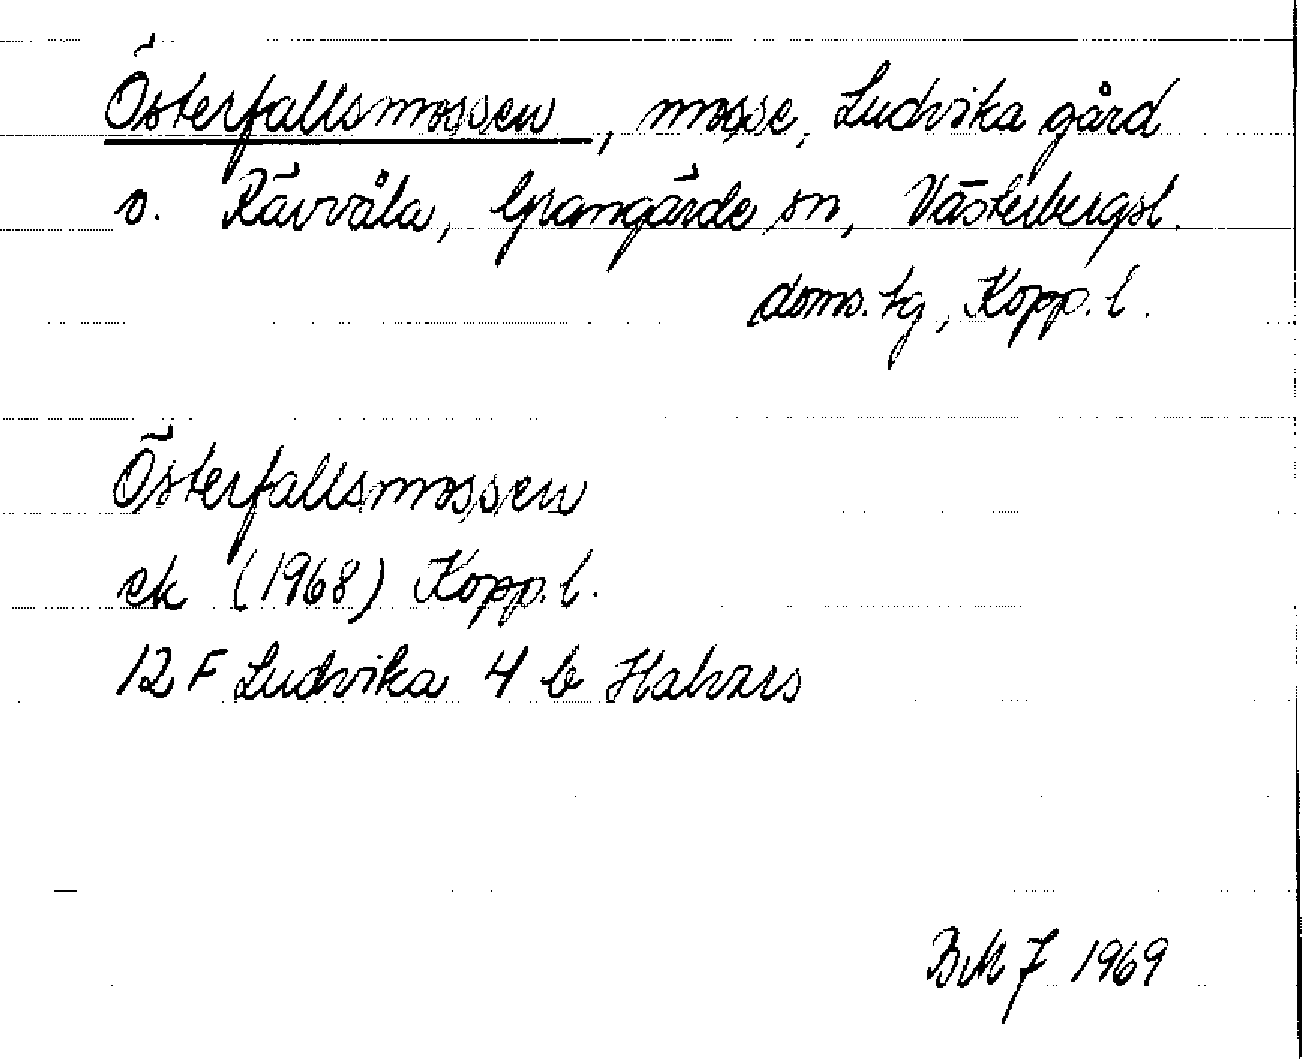 Österfallsmossen, mosse, Ludvika gård
o. Rävvåla, Grangärde sn, Västerbergsl.
doms. tg, Kopp. l.
Österfallsmossen
ek (1968) Kopp. l.
12 F Ludvika 4 b Halvars
BMJ 1969